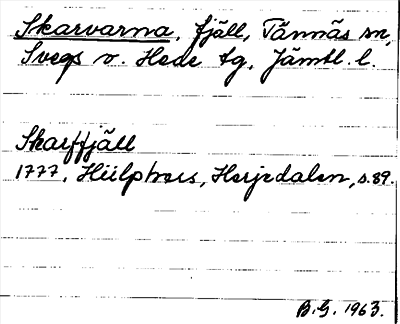 Skarvarna, fjäll, Tännäs sn,
Svegs o. Hede tg, Jämtl. l.
Skarffjäll
1777. Hülphers, Herjedalen, s. 89.
B.G. 1963.